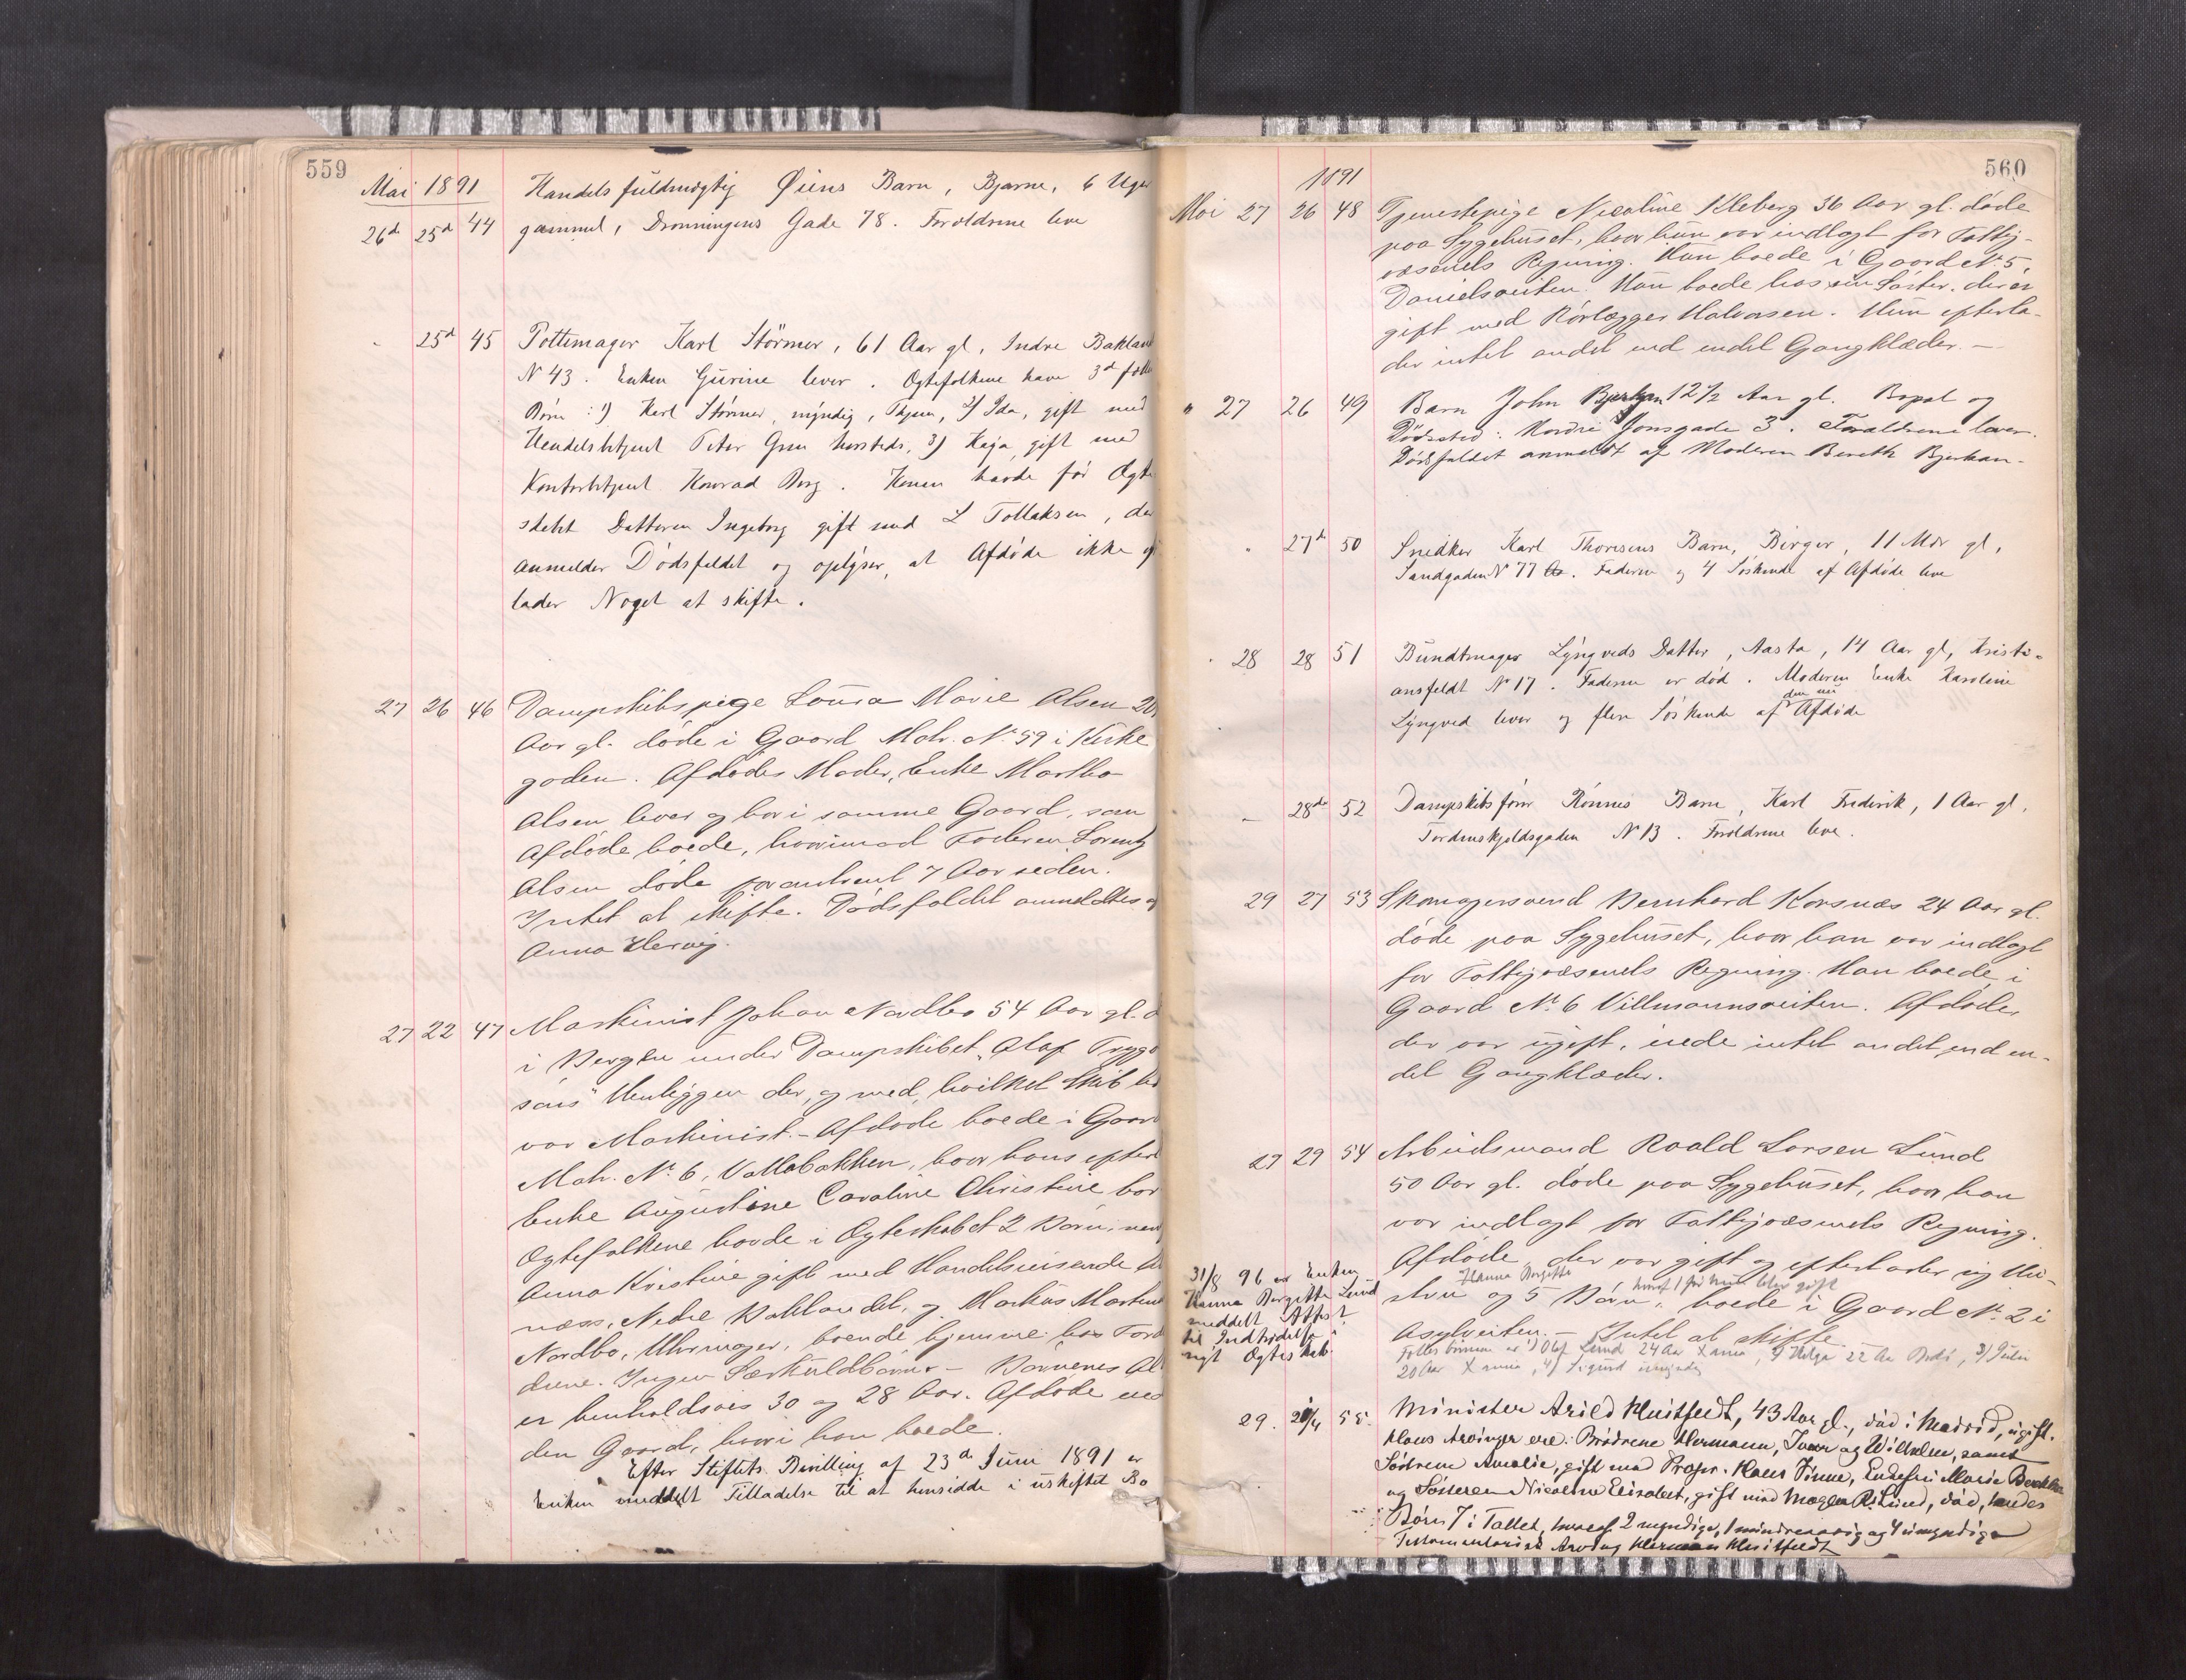 559
Mai 1891
26d 25d 44 Handelsfuldmægtig Øiens Barn, Bjarne, 6 Uger
gammel, Dronningens Gade 78. Forældrene leve
25d 45 Pottemager Karl Störmer, 61 Aar gl, Indre Bakland
N 43. Enken Gurine lever. Ægtefolkene have 3d fælles
Børn: 1) Karl Störmer, myndig, 2) Ida, gift med
Handelsbetjent Peter 3) Kaja, gift med
Kontorbetjent Konrad Borg. Konen havde før Ægte
skabet Datteren Ingeborg gift med L Tollaksen, der
anmelder Dødsfaldet og oplyser, at Afdøde ikke
lader Noget at skifte.
27 26 46 Dampskibspige Loura Marie Olsen 20
Aar gl. døde i Gaard Matr. No 59 i Kirke
gaden. Afdødes Moder, Enke Martha
Olsen lever og bor i samme Gaard, som
Afdøde boede, hvorimod Faderen Lorentz
Olsen døde for omtrent 7 Aar siden.
Intet at skifte. Dødsfaldet anmeldtes af
Anna
27 22 47 Maskinist Johan Nordbo 54 Aar gl. d
i Bergen under Dampskibet "Olaf Trygva
sons" Henliggen der, og med hvilket Skib han
var Maskinist. - Afdøde boede i Gaard
Matr. No 6, Vollabakken, hvor hans efterl
Enke Augustine Caroline Christine bor
Ægtefolkene havde i Ægteskabet 2 Børn, nem
Anna Kristine gift med Handelsreisende
næss, Nedre Baklandet, og Markus Martin
Nordbo, Uhrmager, boende hjemme hos Foræl
drene. Ingen Særkuldbørn - Børnenes Al
er henholdsvis 30 og 28 Aar. Afdøde eied
den Gaard, hvori han boede.
Efter Stiftets Bevilling af 23d Juni 1891 er
Enken meddelt Tilladelse til at hensidde i uskiftet Bo
560
1891
Mai 27 26 48 Tjenestepige Nicoline Kleberg 36 Aar gl. døde
paa Sygehuset, hvor hun var indlagt for Fattig-
væsenets Regning. Hun boede i Gaard No 5,
Danielsveiten. Hun boede hos sin Søster, der er
gift med Rørlægger Halvorsen. Hun efterla-
der intet andet end endel Gangklæder. -
" 27 26 49 Barn John 12 1/2 Aar gl. Bopæl og
Dödssted: Nordre Jonsgade 3. Forældrene lever.
Dödsfaldet anmeldt af Moderen Bereth
" 27d 50 Snedker Karl Thoresens Barn, Birger, 11 Mdr gl,
Sandgaden N 77. Faderen og 4 Søskende af Afdøde leve
" 28 28 51 Bundtmager Lyngveds Datter, Aasta, 14 Aar gl, Kristi-
ansfeldt No 17. Faderen er død. Moderen Enke Karoline
Lyngved lever og flere Søskende af den nu Afdøde
28de 52 Dampskibsfører Rönnes Barn, Karl Frederik, 1 Aar gl,
Tordenskjoldsgaden N 13. Forældrene leve.
29 27 53 Skomagersvend Bernhard Korsnæs 24 Aar gl.
døde paa Sygehuset, hvor han var indlagt
for Fattigvæsenets Regning. Han boede i
Gaard No 6 Villmannsveiten. Afdøde,
der var ugift, eiede intet andet end en-
del Gangklæder.
27 29 54 Arbeidsmand Roald Larsen Lund
50 Aar gl. døde paa Sygehuset, hvor han
var indlagt for Fattigvæsenets Regning.
Afdøde, der var gift og efterlader sig Hu-
Hanna Bergitte
stru og 5 Børn, boede i Gaard No 2 i
Asylveiten. - Intet at skifte
Fælles børnene er 1) Olaf Lund 24 Aar 2) Helga 22 Aar 3)
20 Aar 4) Sigurd umyndig
31/8 96 er Enken
Hanna Bergitte Lund
meddelt Attest
til Indtrædelse i
nyt Ægteskab.
29. 55. Minister Arild Huitfeldt, 43 Aar gl., død i Madrid, ugift.
Hans Arvinger ere: Brødrene Hermann, Ivar og Wilhelm, samt
Søstrene Amalie, gift med Propr. Hans Finne, Enkefru Marie
og Søsteren Nicoline Elisabeth, gift med Mægler R. Lund, død, hendes
Børn 7 i Tallet, hvoraf 2 myndige, 1 mindreaarig og 4 umyndige
Testamentarisk Arving Herman Huitfeldt